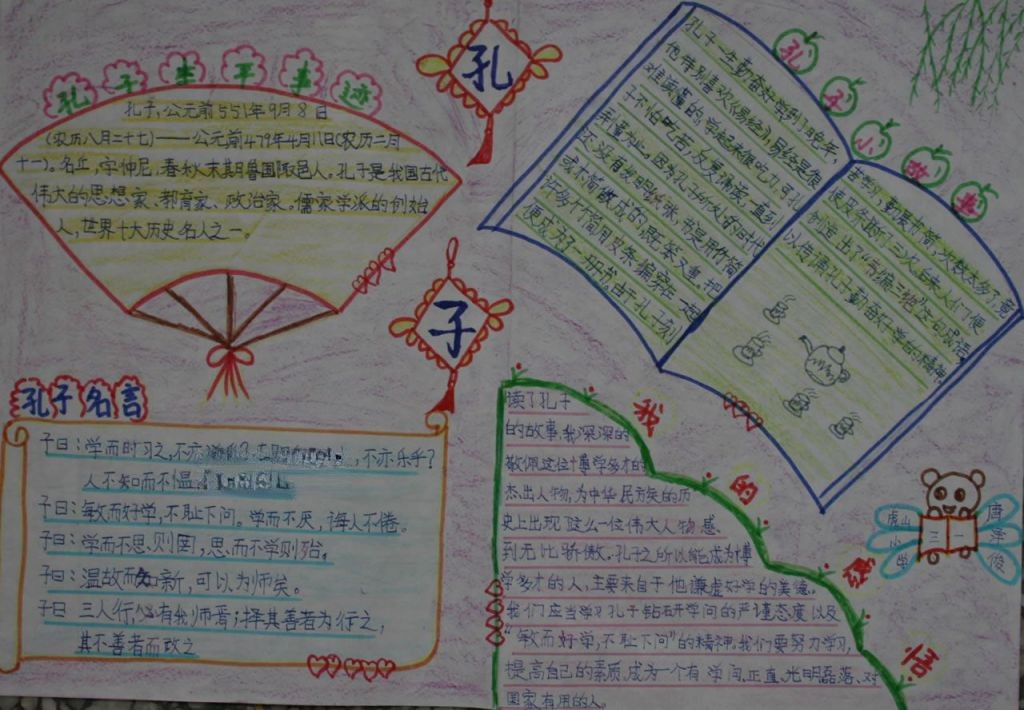 孔子生平事迹
孔子,公元前551年9月8日
(农历八月二十七)——公元前479年4月11日(农历二月
十一)。名丘,字仲尼,春秋末期鲁国陬邑人。孔子是我国古代
伟大的思想家、教育家、政治家。儒家学派的创始
人,世界十大历史名人之一。
孔
子
孔子小故事
孔子一生勤奋好学,到了晚年,
他特别喜欢《易经》,易经是很
难读懂的,学起来很吃力,可孔
子不怕吃苦,反复诵读,一直到
弄懂为止。因为孔子所处的时代
还没有发明纸张,书是用竹简
或木简做成的,既笨又重,把
许多竹简用皮条编穿在一起
便成为了一册书。由于孔子刻
苦学习,勤展书简,次数太多了,竟
使皮条断了三次。后来人们便
创造出了“韦编三绝”这句成语,
以传诵孔子勤奋好学的精神。
孔子名言
子曰:学而时习之,不亦,不亦乐乎?
人不知而不愠,
子曰:敏而好学,不耻下问。学而不厌,诲人不倦。
子曰:学而不思则罔,思而不学则殆。
子曰:温故而知新,可以为师矣。
子曰 三人行,必有我师焉;择其善者为行之,
其不善者而改之
我的感悟
读了孔子
的故事,我深深的
敬佩这位博学多才的
杰出人物,为中华民族的历
史上出现这么一位伟大人物感
到无比骄傲。孔子之所以能成为博
学多才的人,主要来自于他谦虚好学的美德。
我们应当学习孔子钻研学问的严谨态度以及
“敏而好学,不耻下问”的精神。我们要努力学习,
提高自己的素质,成为一个有学问、正直、光明磊落、对
国家有用的人。
虎山
小学
三一
唐
俊